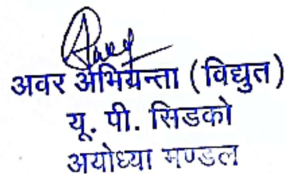 अवर अभियन्ता (विद्युत)
यू. पी. सिडको
अयोध्या मण्डल